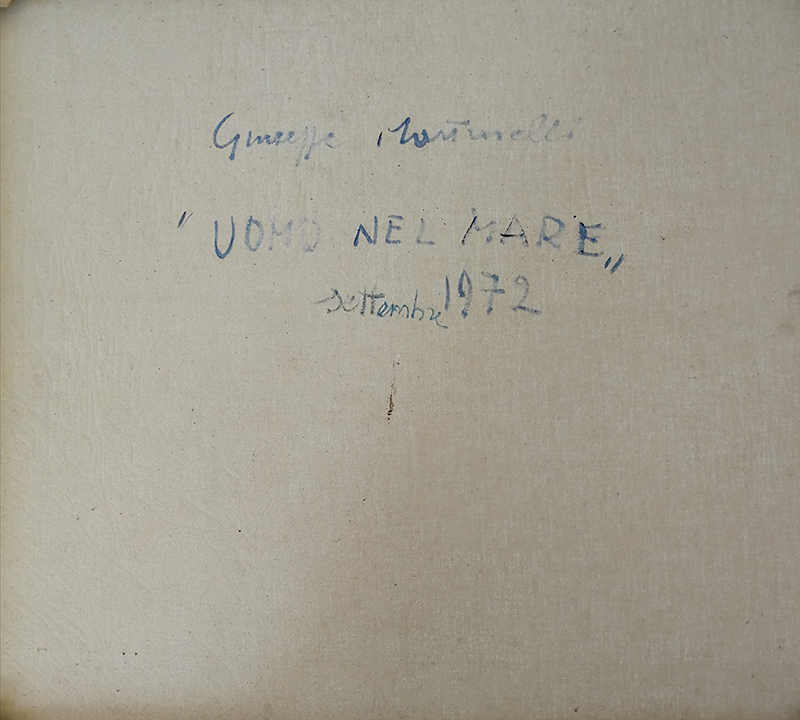 Giuseppe Martinelli
"UOMO NEL MARE„
settembre 1972